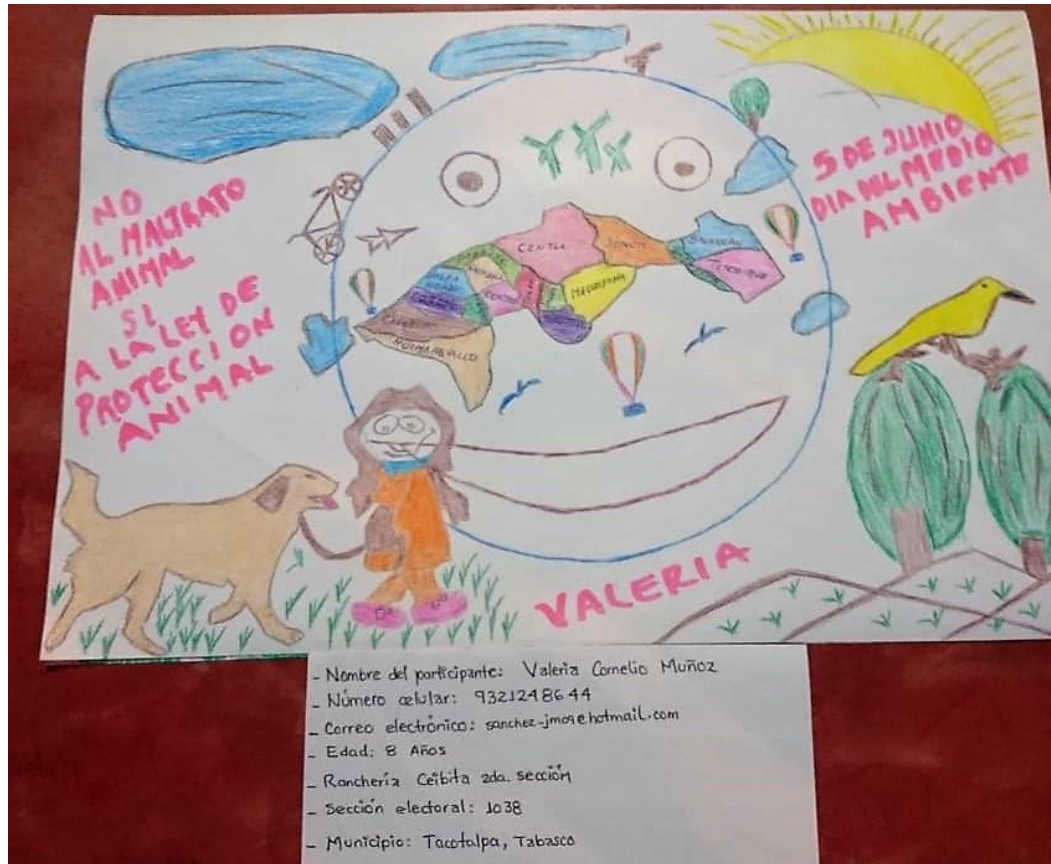 NO
AL MALTRATO
ANIMAL
SI
A LA LEY DE
PROTECCION
ANIMAL
5 DE JUNIO
DIA DEL MEDIO
AMBIENTE
CENTLA
JONUTA
BALANCAN
TENOSIQUE
MACUSPANA
CENTRO
CARDENAS
HUIMANGUILLO
VALERIA
- Nombre del participante: Valeria Cornelio Muñoz
- Número celular: 9321248644
- Correo electrónico: sanchez-jmos@hotmail.com
- Edad: 8 Años
- Ranchería Ceibita 2da. sección
- Sección electoral: 1038
- Municipio: Tacotalpa, Tabasco